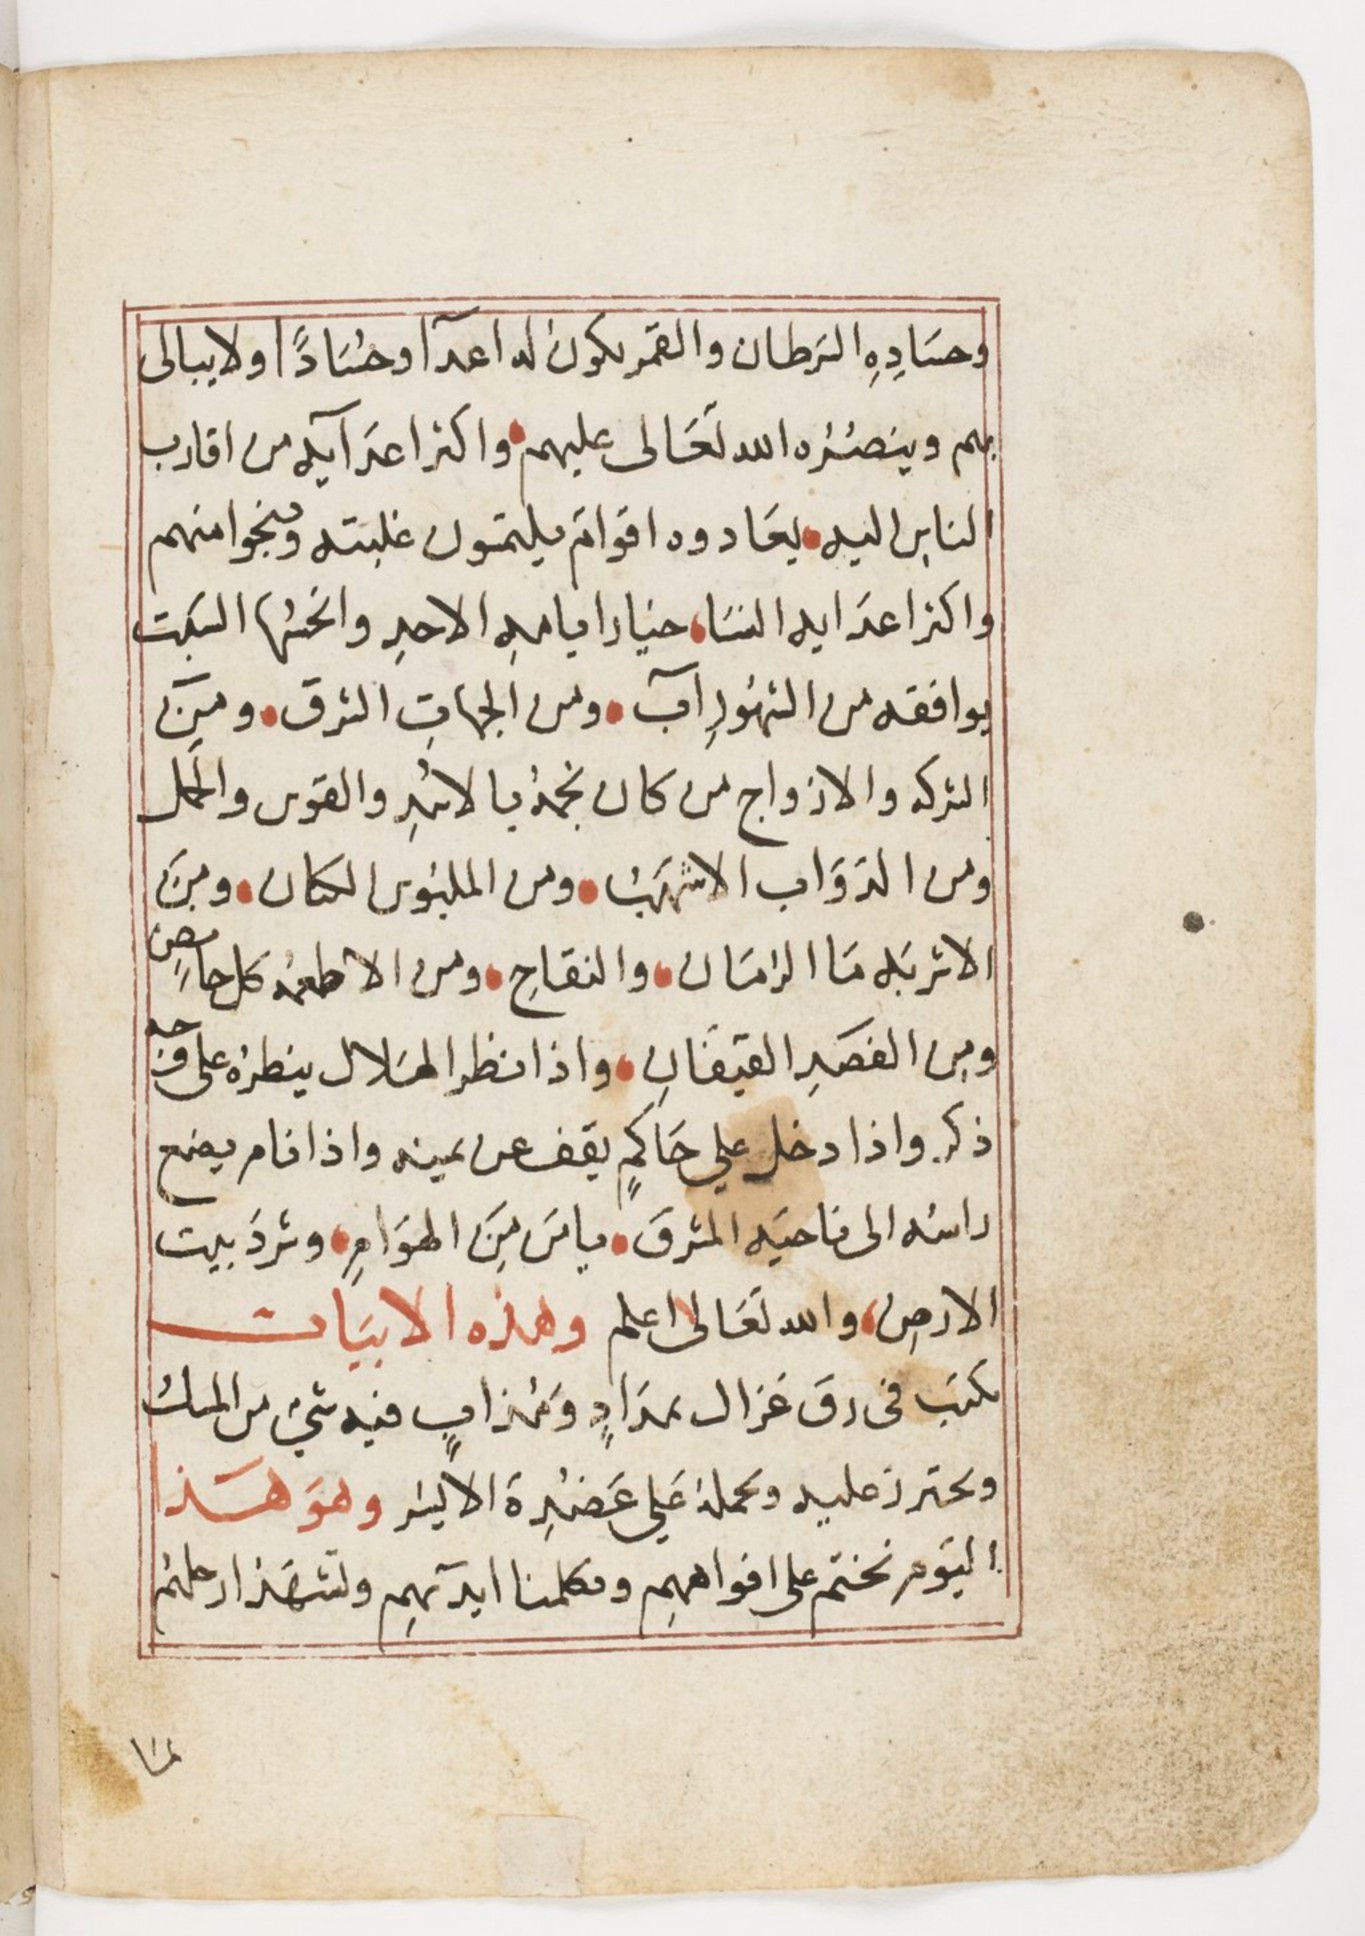 وحسَادِهِ السَرطان والقمر يكون له اعدآ وحسَادًا ولا يبالى
بهم وينصُرُه الله تعَالى عليهم واكثر اعدَآيه من اقارب
الناسِ اليه يعَادوه اقوام يلتمسون غلبته وينجوا منهم
واكثر اعدَايه النسَا خيار ايامهِ الاحدِ وانحسُها السَبت
يوافقه من الشهُورِ آب ومن الجهاتِ الشرق ومِنَ
الشركه والازواج من كان نجمهُ بالاسَدِ والقوس والحَمل
ومن الدوَاب الاشهَبُ ومن الملبُوس الكتان ومِنَ
الاشربَه مَا الرمَان والتفاحِ ومن الاطعمه كل حامضِ
ومِن الفصَدِ القيفَالِ واذا نظر الهلال ينظرهُ على وجه
ذكر واذا دخل علي حَاكمٍ يقف عن يمينه واذا نام يضع
راسُه الى ناحيَه المشرق يامَن مِنَ الهوَامِ وشردَبيت
الارضِ والله تعَالى اعلم وهذه الابيَات
تكتب فى رق غزال بمدَادٍ وَمُذابٍ فيه شىٍ من المسك
ويحترز عليه ويحملهُ عَلي عَضُدِهِ الايسَر وهوَ هَذا
اليَوم نختم على افواههِم وتكلمنا ايدَيهِم وتشهَدُ ارجلهُم
لمَا